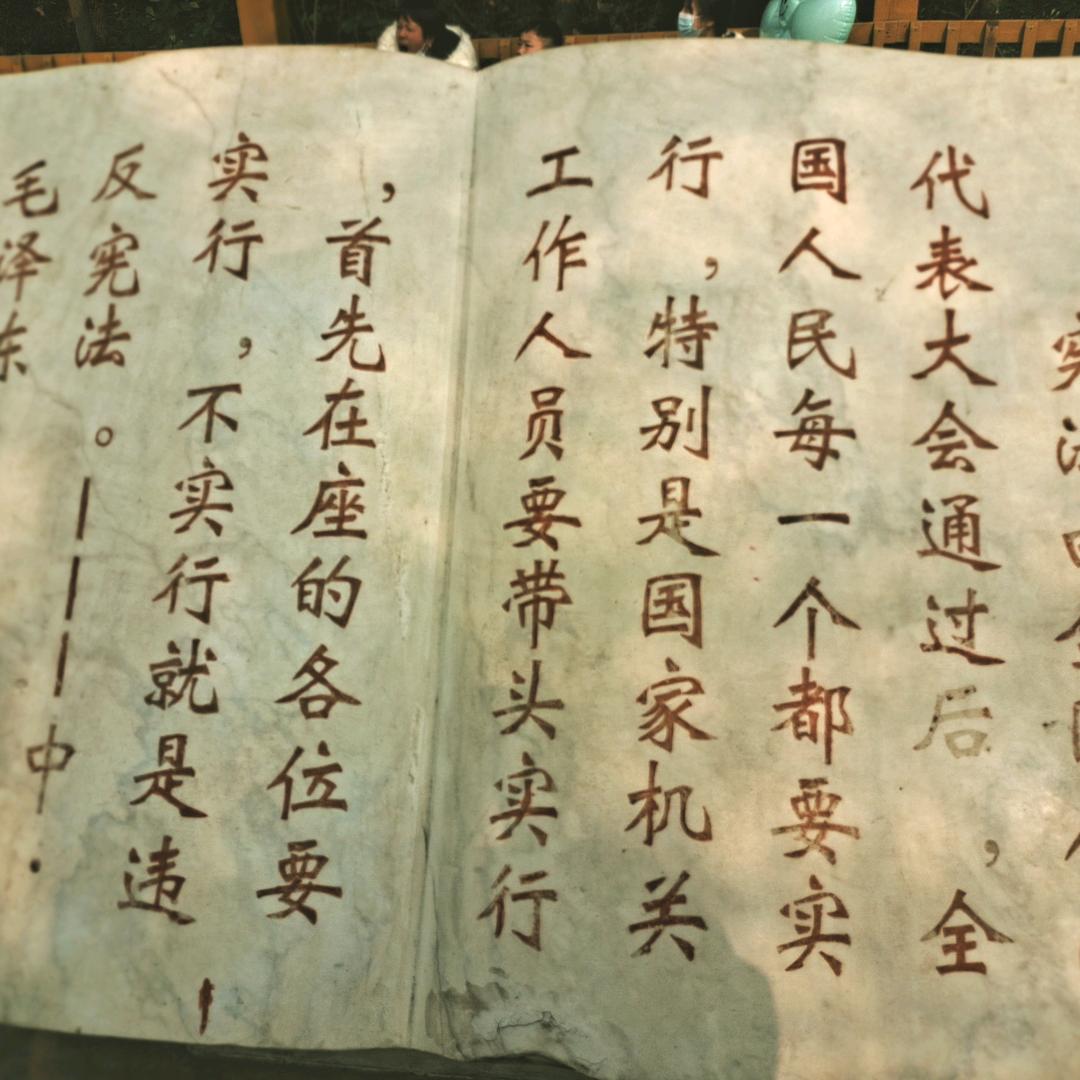 代表大会通过后，全
国人民每一个都要实
行，特别是国家机关
工作人员要带头实行
，首先在座的各位要
实行，不实行就是违
反宪法。———中·
毛泽东